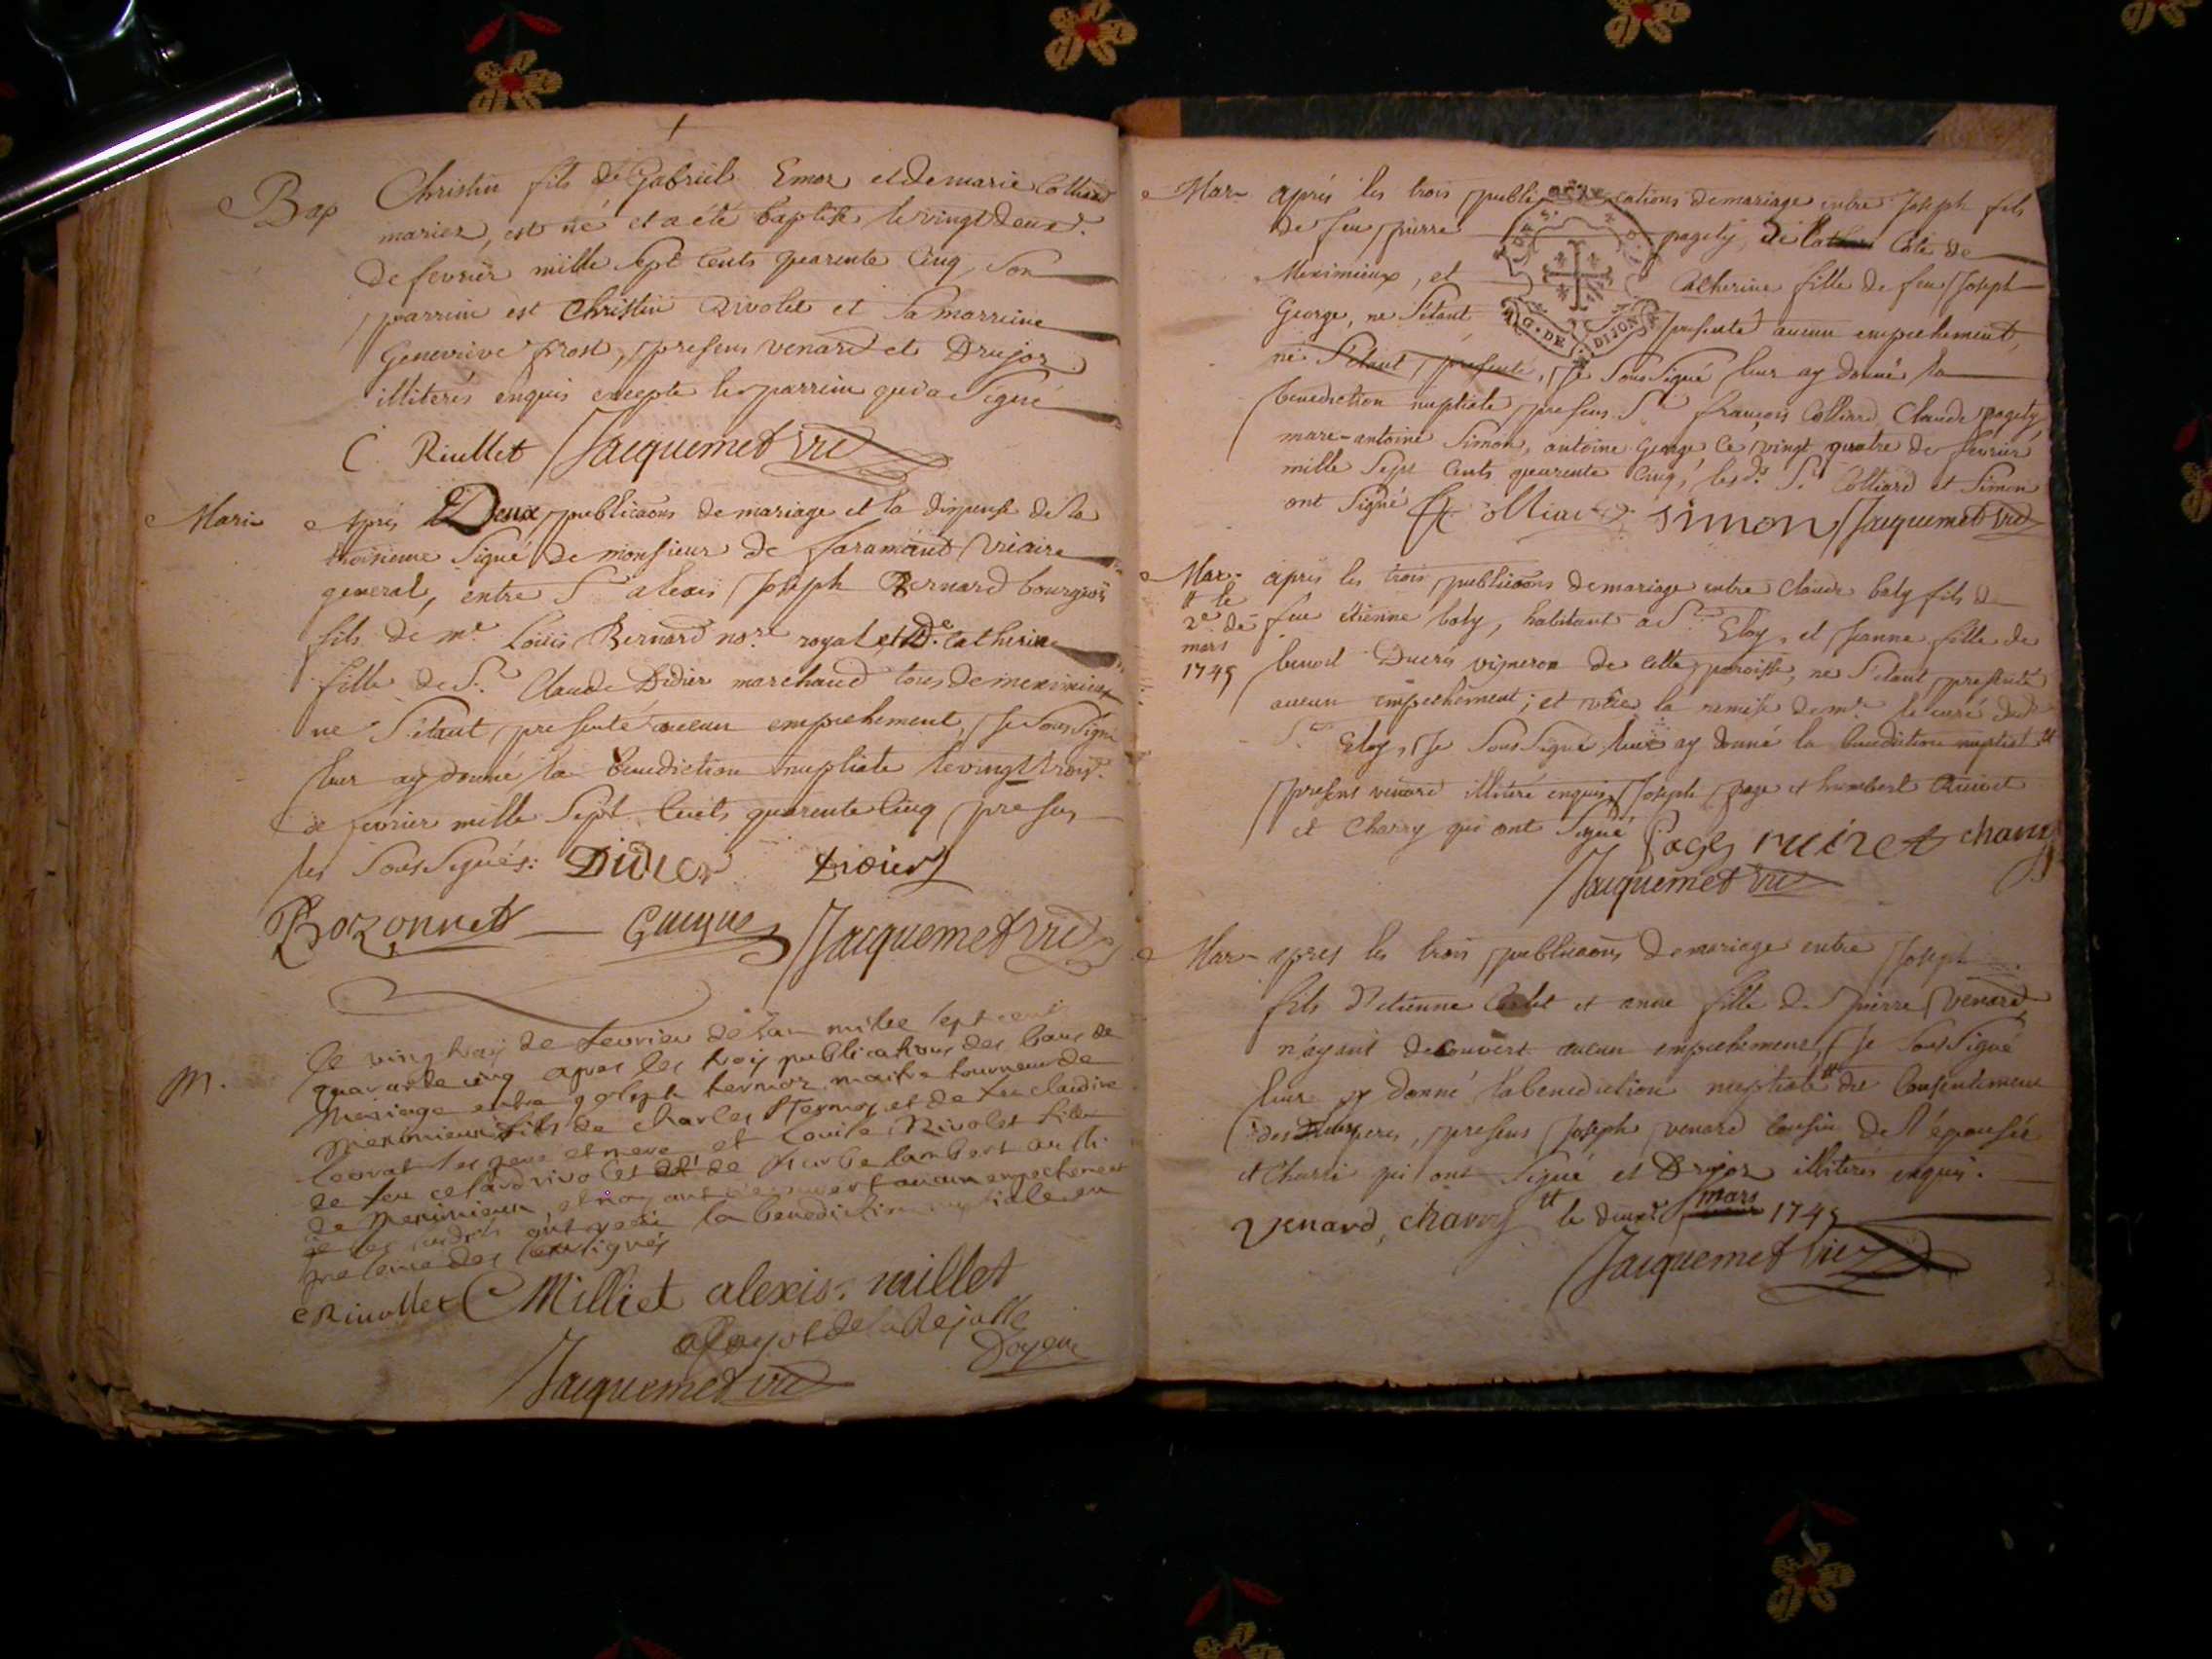 Bap Christin fils de Gabriel Emoz et de marie Colliard
mariez, est né et a été baptisé le vingt deux.
de fevrier mille sept cents quarente cinq, son
parrein est Christin Rivolet et sa marreine
Genevieve frost, presens venard et Drujoz
illiterés enquis excepté le parrein qui a signé
C Riullet Jacquemet vic
Mari apres Deux publicaons de mariage et la dispense de la
troisieme signé de monsieur de faramant vicaire
general, entre Sr alexis Joseph Bernard bourgeois
fils de me Louis Bernard nore royal et De Catherine
fille de Sr Claude Didier marchand tous de meximieux
ne s'étant presenté aucun empechement, Je soussigné
leur ay donné la benediction nuptiale le vingt trois.
de fevrier mille sept cents quarente cinq presens
les soussignés: Didier Didier
Bozonnet Jacquemet vic
M. le vingt trois de fevrier de l'an mille sept cent
quarante cinq apres les trois publications des bans de
mariage entre joseph termoz maitre tourneur de
meximieux fils de charles termoz et de feu claudine
ses pere et mere, et Louise Rivolet fille
de feu rivolet et de lambert
de meximieux, et n'ayant decouvert aucun empechement
je les ont reçu la benediction nuptiale en
presence des soussignés
C Riuollet C Milliet alexis millet
Jacquemet vic Doyen
Mar- aprés les trois publications de mariage entre Joseph fils
de feu pierre pagety, de Côte de
Meximieux, et Catherine fille de feu Joseph
George, ne s'étant presenté aucun empechement,
ne s'étant presenté, Je soussigné leur ay donné la
benediction nuptiale presens Sr françois Colliard Claude pagety,
marc-antoine Simon, antoine George ce vingt quatre de fevrier
mille sept cents quarente cinq, lesds Sr Colliard et Simon
ont signé Colliard Simon Jacquemet vic
G. DE DIJON
Mar- apres les trois publicaons de mariage entre claude baly fils de
le 2e de mars 1745
feu étienne baly, habitant a St Eloy, et Jeanne fille de
benoit Ducrés vigneron de cette paroisse, ne s'étant presenté
aucun empechement; et vue la remise de mr le curé dudt
St Eloy, Je soussigné leur ay donné la benediction nuptiale
presens venard illiteré enquis, Joseph page et humbert Ruivet
et Charry qui ont signé Page ruivet charry
Jacquemet vic
Mar- apres les trois publicaons de mariage entre Joseph
fils d'etienne et anne fille de pierre venard
n'ayant decouvert aucun empechement, Je soussigné
leur ay donné la benediction nuptiale du consentement
des peres, presens Joseph venard cousin de l'épousée
et Charri qui ont signé et Drujoz illiterés enquis.
venard, charry le deux mars 1745
Jacquemet vic